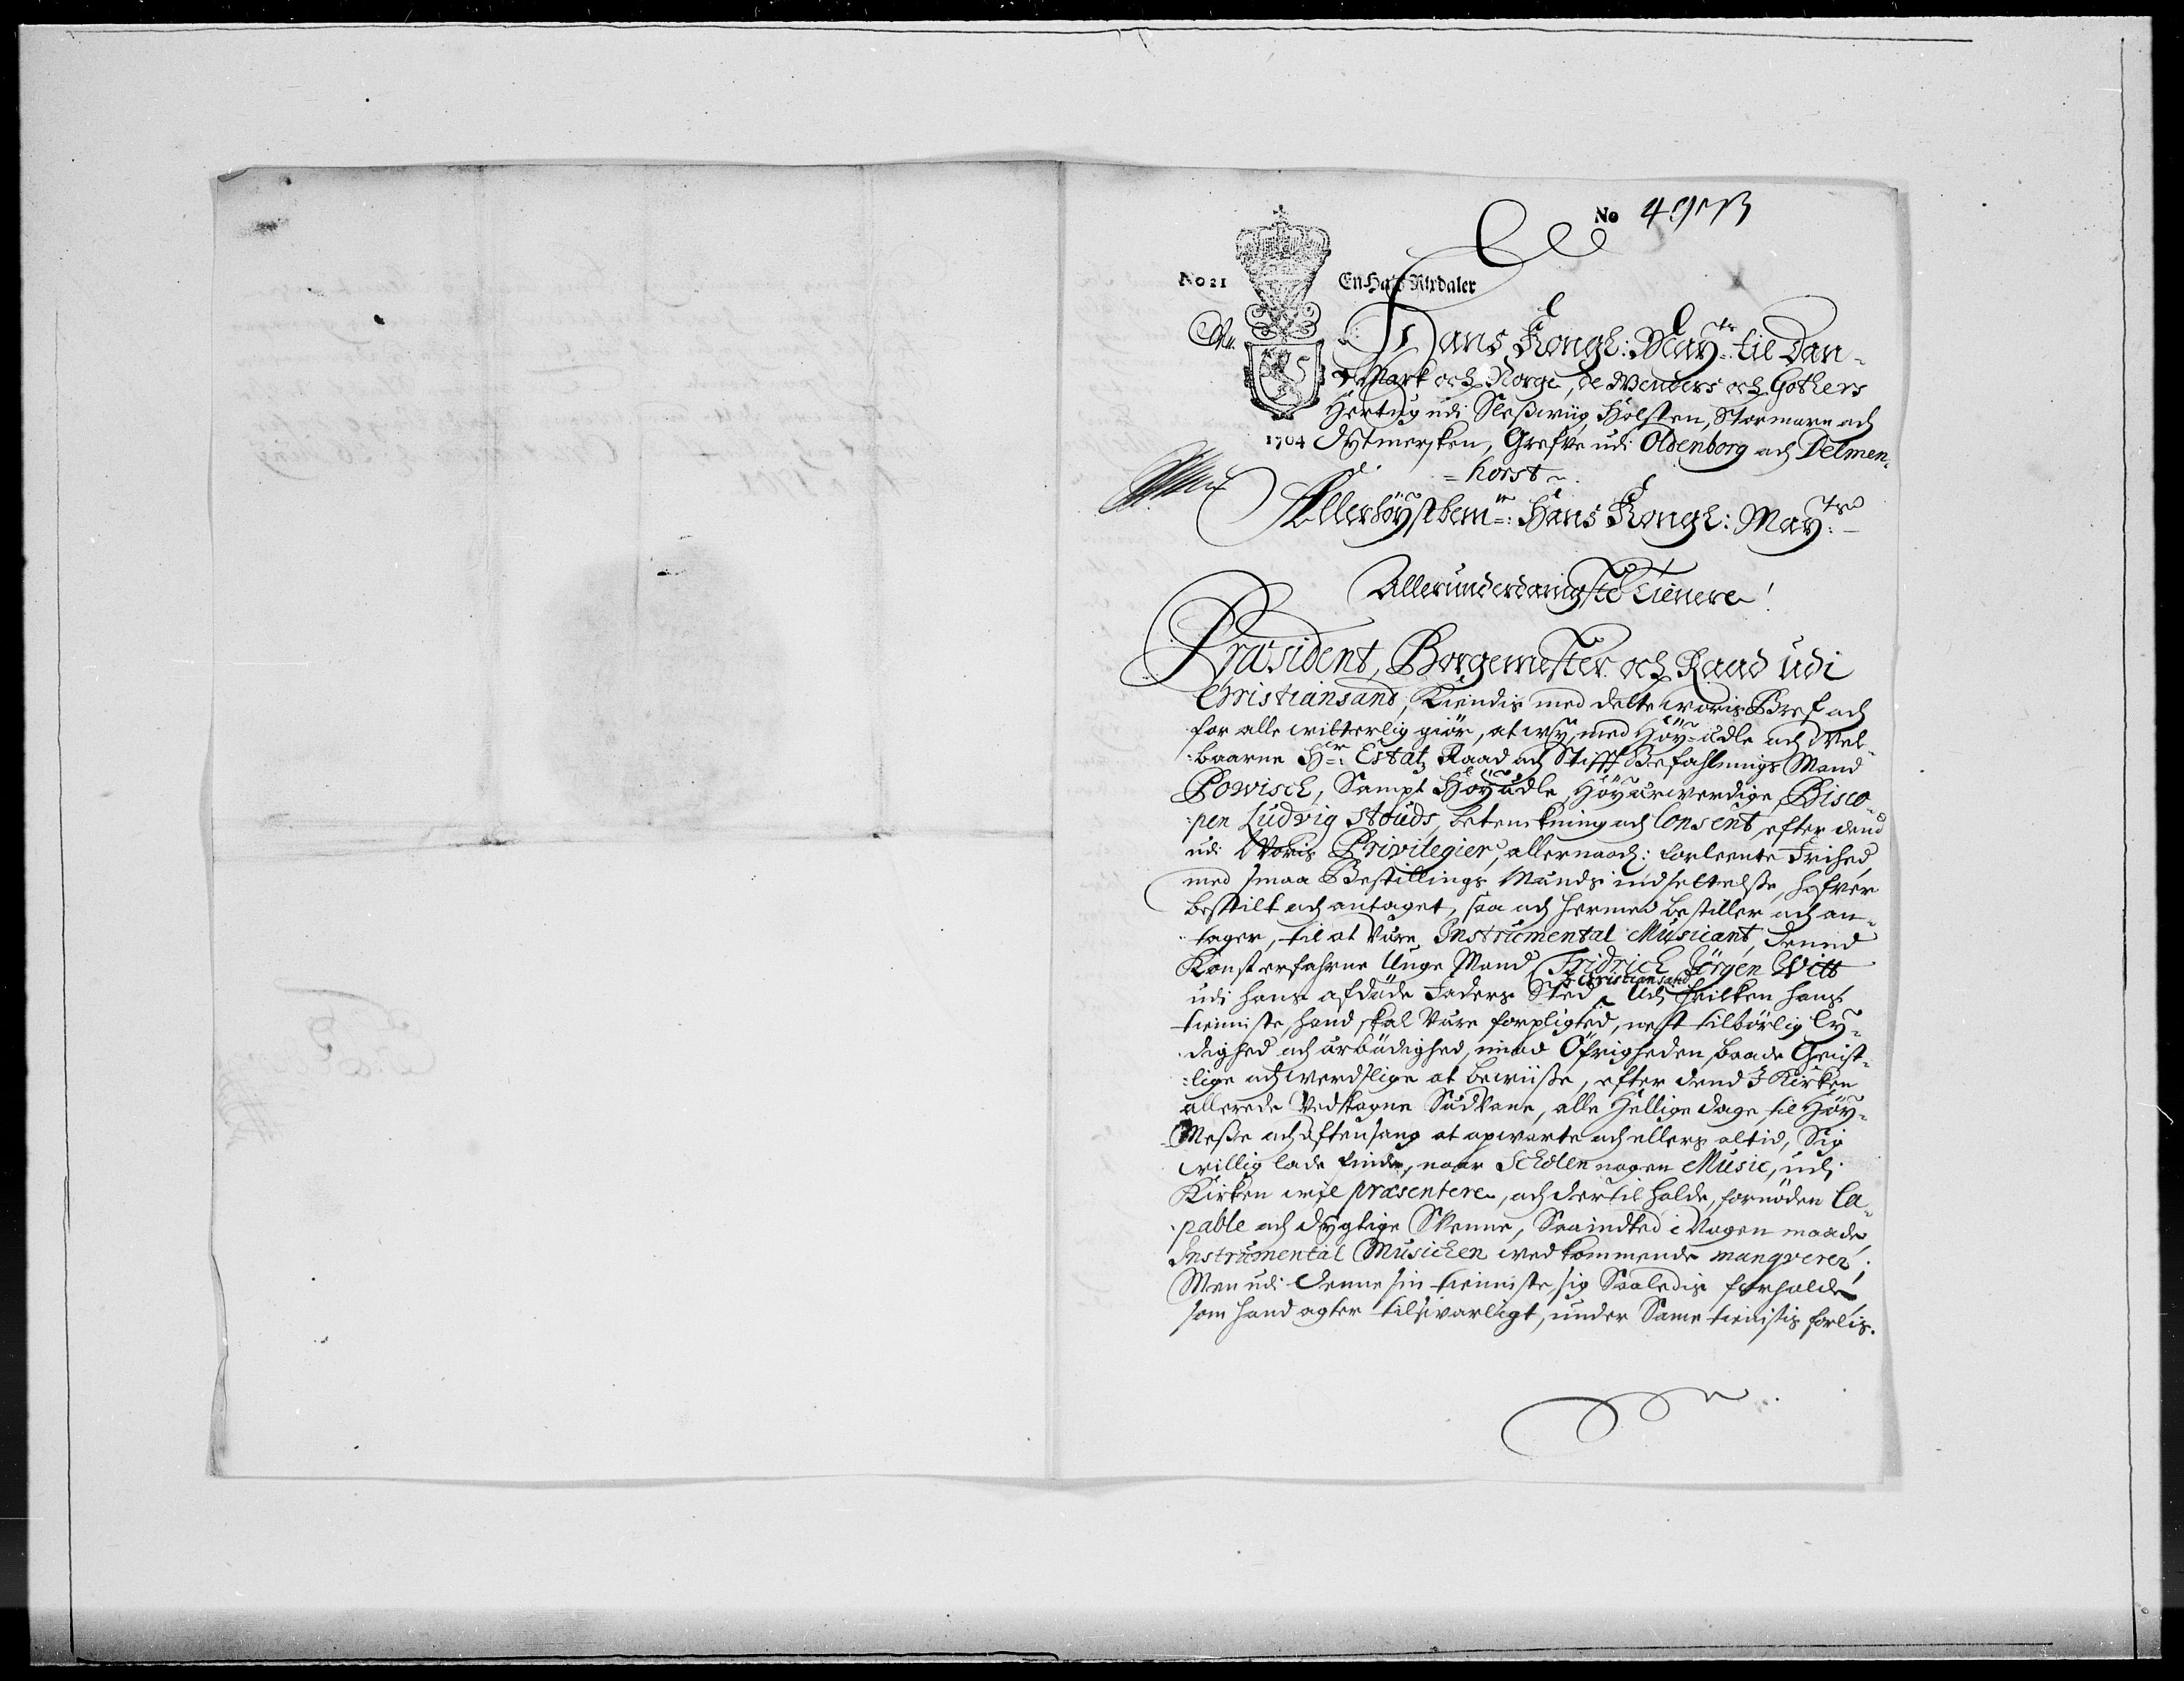 No
No 21
En Half Rixdaler
Hans Kongl: May:ts til Dan-
Mark och Norge, de Wenders och Gothers
Hertug udi Sleßwiig, Holsten, Stormarn och
1704
Dytmersken, Grefve udi Oldenborg och Delmen-
=horst
Allerhöystbem:te Hans Kongl: May:ts
Allerunderdanigste Tienere!
Præsident, Borgemester och Raad udi
Christiansand, Kiendis med dette woris Bref och
for alle witterlig giör, at wy, med Höy-ädle och Vel-
baarne Hr: Estatz Raad och Stifft Befahlnings Mand
Powisch, Sampt Höyädle, Höyärwerdige Bisco-
pen Ludvig Stouds, betenckning och Consent, efter dend
udi Woris Privilegier, allernaad: forleente Frihed,
med smaa Bestillings Mænds indsettelße, hafver
bestilt och antaget, saa och hermed bestiller och an-
tager, til at Være Instrumental Musicant, dennd
Konsterfahrne Unge Mand Fridrich Jörgen Witt
udi hans afdöde Faders Sted i Christiansand Udj hvilken hans
tienniste, hand skal Være forpligted, nest tilbörlig Ly-
dighed och ärbödighed, imod Öfrigheden, baade Geist-
lige och werdslige at bewiiße, efter dend I Kirken
allerede Vedtagne Sædvane, alle Hellige dage, til Höy-
Meße och Aftensang at opwarte och ellers altid, Sig
willig lade finde, naar Scholen nogen Music, udj
Kirken wil præsentere, och dertil holde, fornöden Ca-
pable och dygtige Svenne, Saa inted i Nogen maade,
Instrumental Musichen wedkommende manqverer;
Men udi denne sin tienniste, sig Saaledis forholde
som hand agter tilsvarligt, under Samme tienistis forlis.